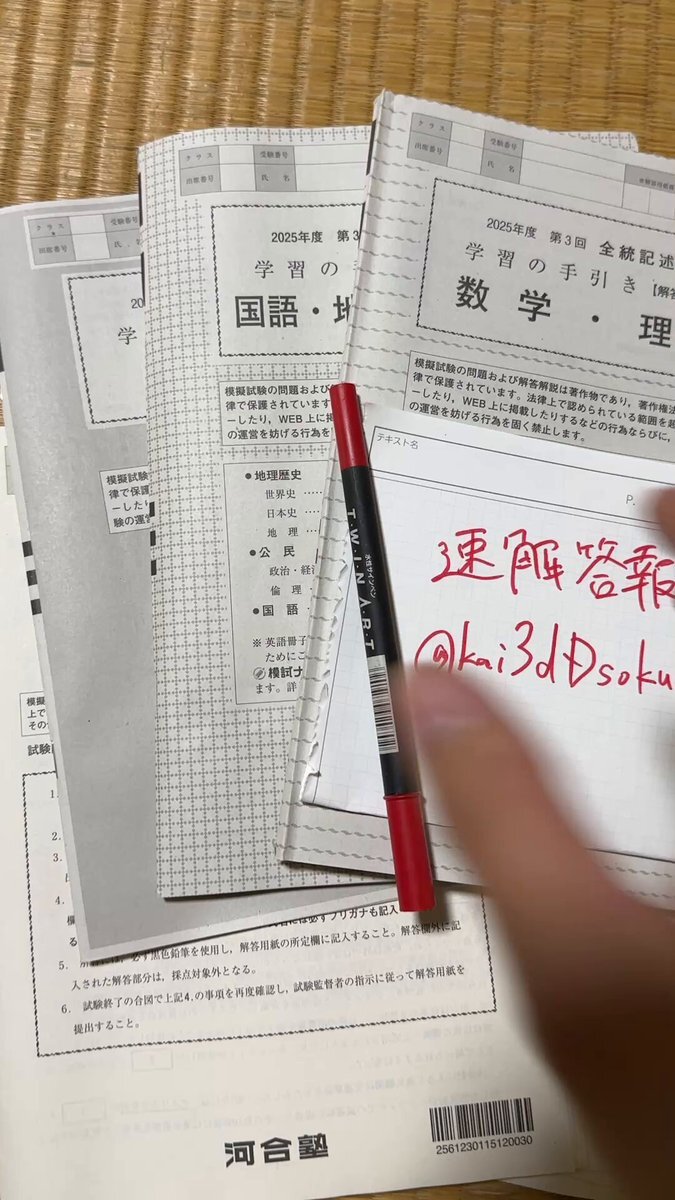 クラス
受験番号
出席番号
氏 名
2025年度 第3回 全統記述
学習の手引き 【解答
数学・理
模擬試験の問題および解答解説は著作物であり，著作権法
律で保護されています。法律上で認められている範囲を超
ーしたり，WEB上に掲載したりするなどの行為ならびに，
の運営を妨げる行為を固く禁止します。
テキスト名
P.
速解答報
T・W・I・N・A・R・T
水性サインペン
クラス
受験番号
出席番号
氏 名
2025年度 第3
学習の
国語・地
模擬試験の問題および
律で保護されています
ーしたり，WEB上に掲
の運営を妨げる行為を
●地理歴史
世界史 ……
日本史 ……
地 理 ……
●公 民
政治・経済
倫 理
●国 語
※ 英語冊子
ために
模試ナ
ます。詳
クラス
受験番号
出席番号
氏
20
学
模擬試験
律で保護
ーしたり
験の運営
模擬
上で
その
試験
1
2.
3.
4.
5.
必ず黒色鉛筆を使用し，解答用紙の所定欄に記入すること。解答欄外に記
入された解答部分は，採点対象外となる。
6. 試験終了の合図で上記4.の事項を再度確認し，試験監督者の指示に従って解答用紙を
提出すること。
河合塾
2561230115120030